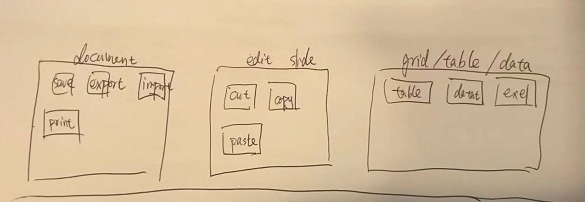 document
save export import
print
edit style
cut copy
paste
grid/table/data
table datat exel